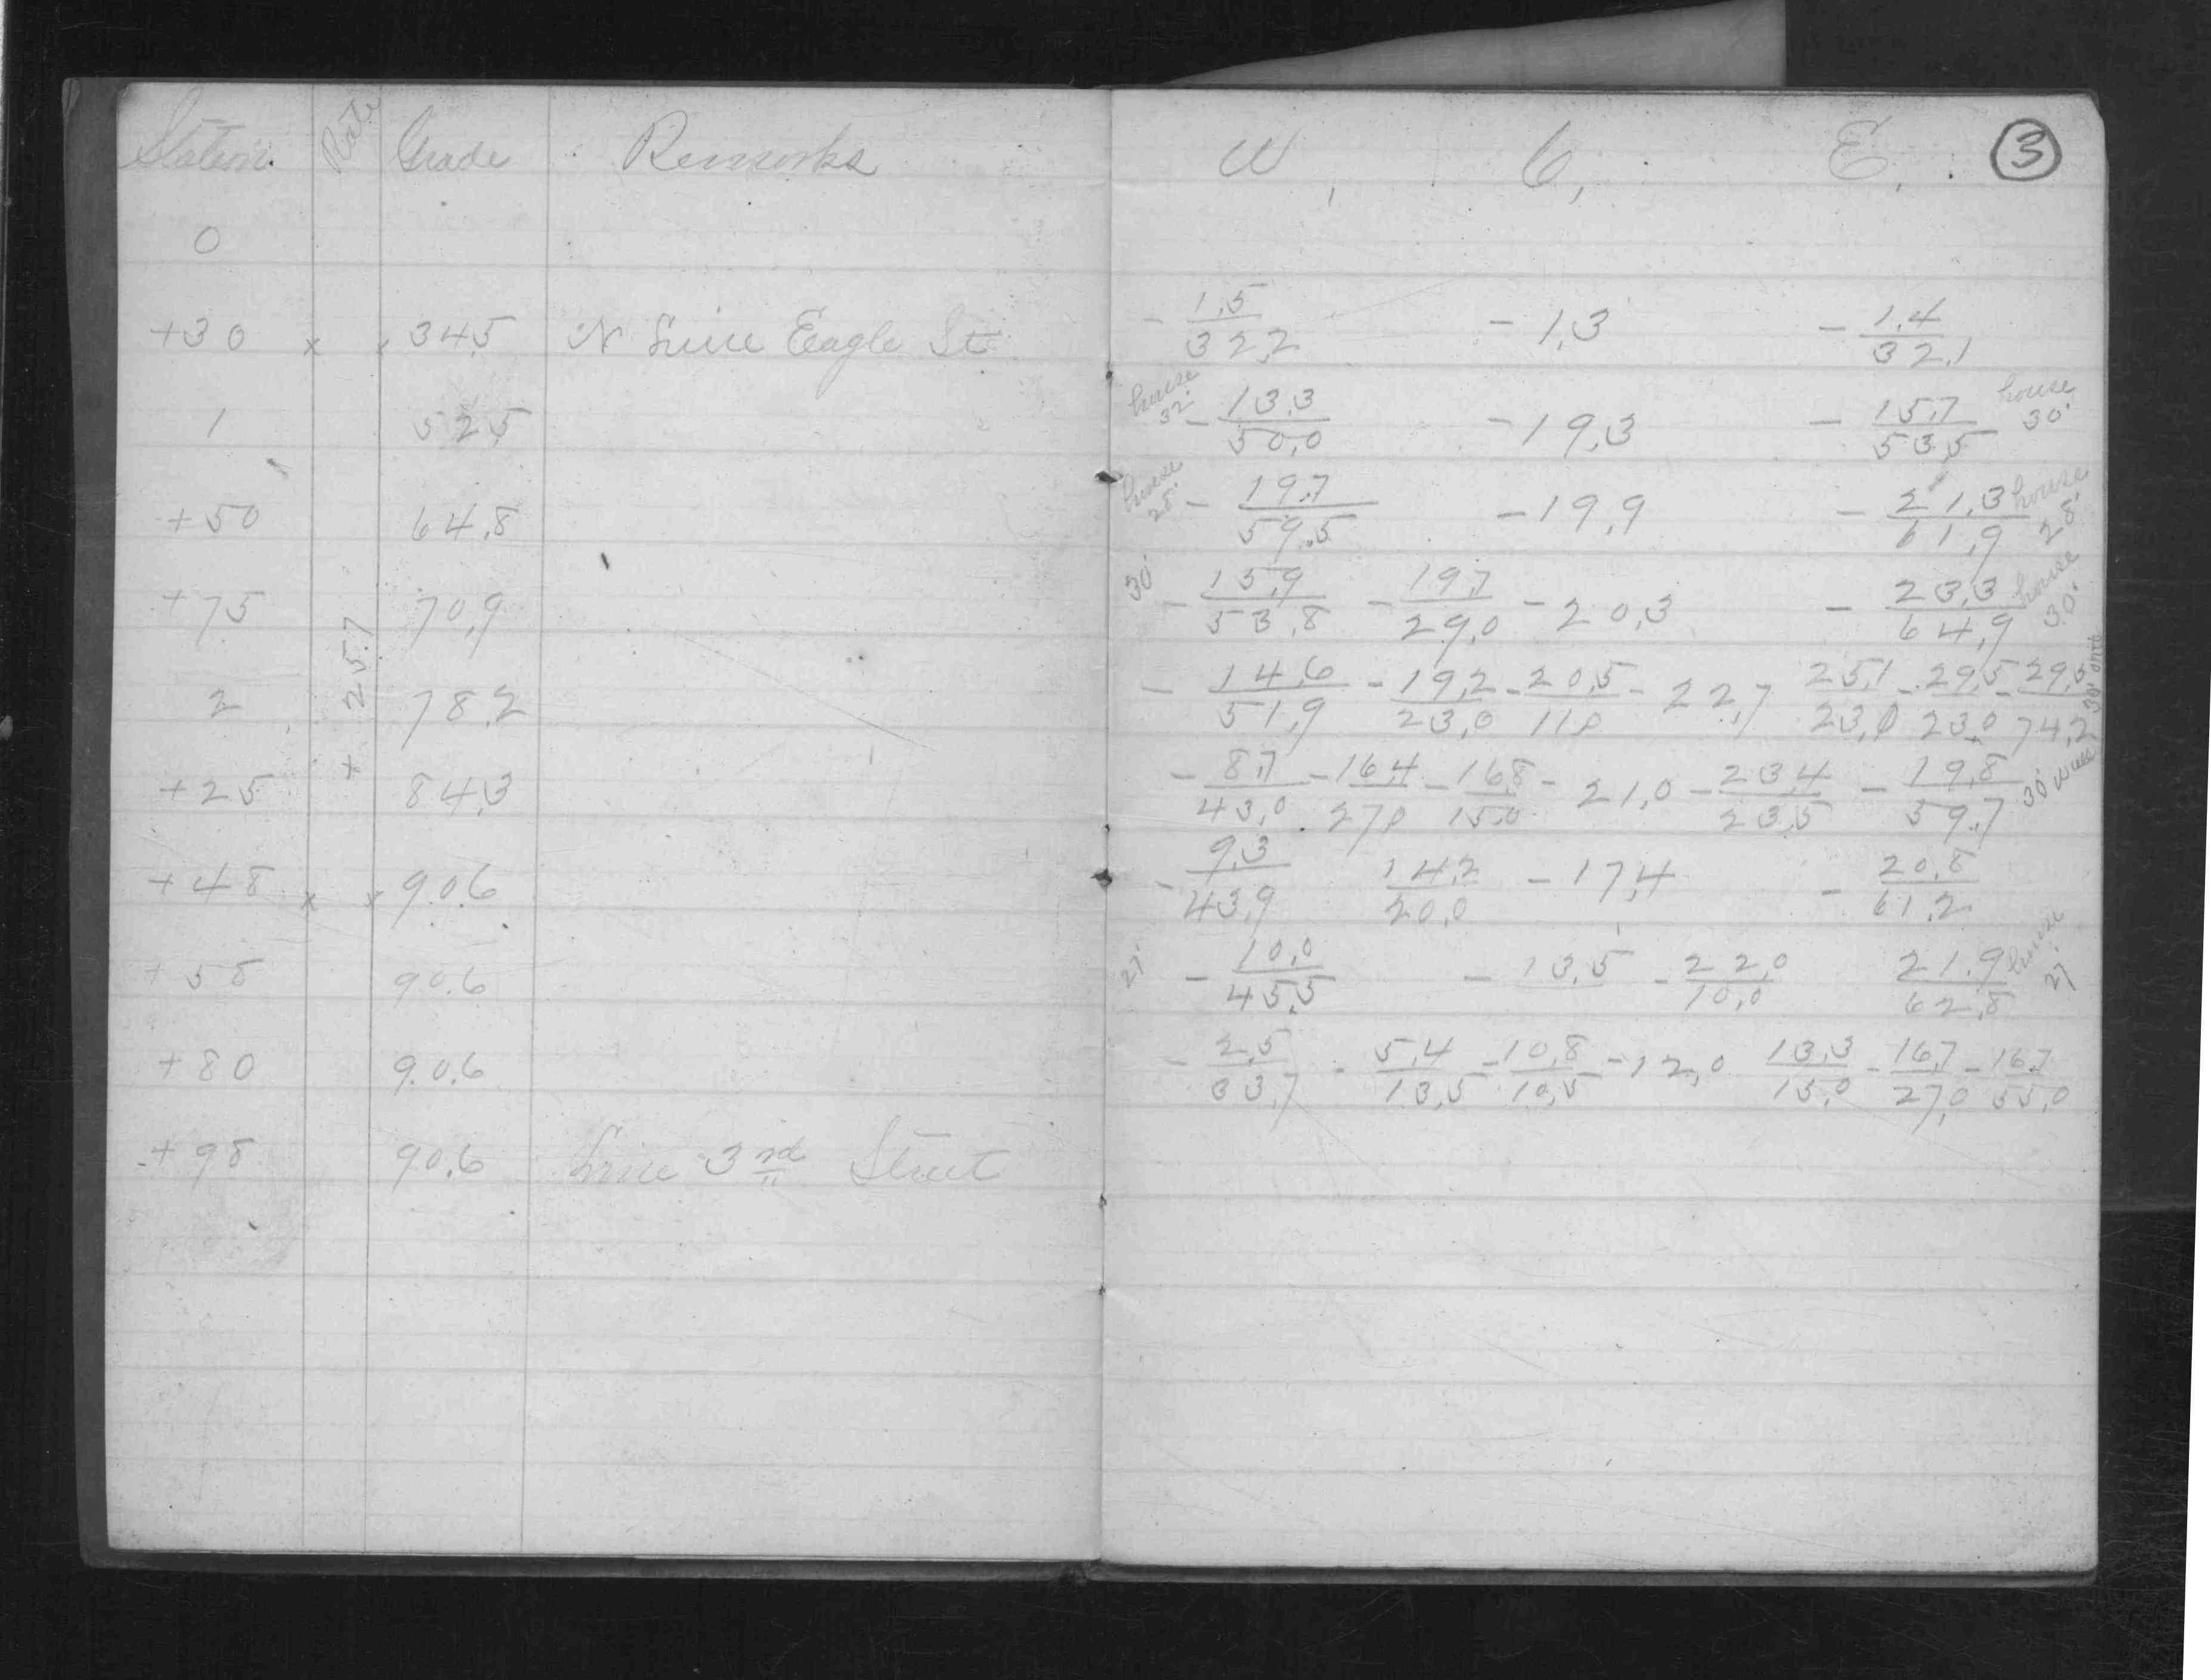 Station. Rate Grade Remarks
0
+30 x x 34.5 N Line Eagle St
1 52.5
+50 64.8
+75 70.9
+ 25.7
2 78.2
+25 84.3
+48 x x 90.6
+58 90.6
+80 90.6
+98 90.6 Line 3rd Street
W, C, E. 3
- 1.5/32.2 - 1.3 - 1.4/32.1
house 32' - 13.3/50.0 - 19.3 - 15.7/53.5 house 30'
house 28' - 19.7/59.5 - 19.9 - 21.3/61.9 house 28'
30' - 15.9/53.8 - 19.7/29.0 - 20.3 - 23.3/64.9 house 30'
- 14.6/51.9 - 19.2/23.0 - 20.5/11.0 - 22.7 25.1/23.0 - 29.5/23.0 - 29.5/74.2 30'
- 8.7/43.0 - 16.4/27.0 - 16.8/15.0 - 21.0 - 23.4/23.5 - 19.8/59.7 30'
- 9.3/43.9 14.2/20.0 - 17.4 - 20.8/61.2
27' - 10.0/45.5 - 13.5 - 22.0/10.0 21.9/62.8 house 27'
- 2.5/33.7 - 5.4/13.5 - 10.8/10.5 - 12.0 13.3/15.0 - 16.7/27.0 - 16.7/55.0